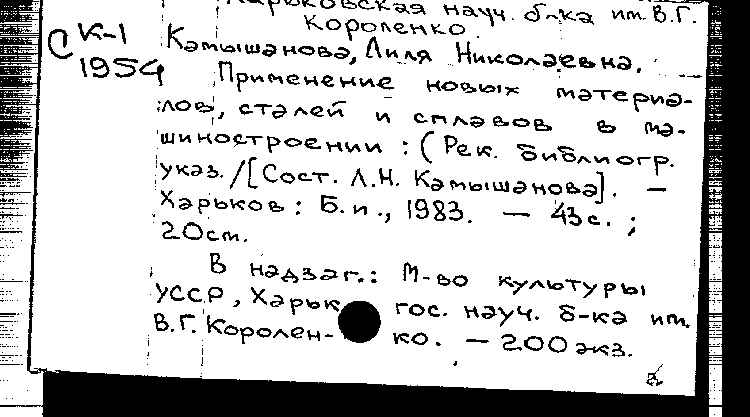 Харьковская науч. б-ка им. В.Г.
Короленко.
С К-1
1954
Камышанова, Лиля Николаевна.
Применение новых материа-
лов, сталей и сплавов в ма-
шиностроении : (Рек. библиогр.
указ. / [Сост. Л.Н. Камышанова]. —
Харьков : Б.и., 1983. — 43с. ;
20см.
В надзаг.: М-во культуры
УССР, Харьк. гос. науч. б-ка им.
В.Г. Королен- ко. — 200 экз.